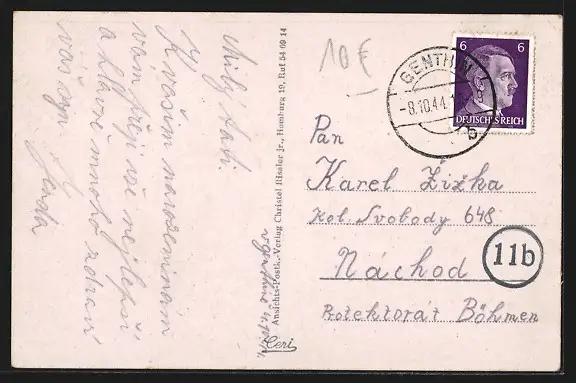 Milý tati.
K vašim narozeninám
vám přeji vše nejlepší
a hlavně mnoho zdraví
váš syn Jenda
Ansichts-Postk.-Verlag Christel Rissler Jr., Hamburg 19, Ruf 54 69 14
Ceri
10 €
GENTHIN
-8.10.44.
b
6 6
DEUTSCHES REICH
Pan
Karel Žižka
Kol. Svobody 648
Náchod
Protektorát Böhmen
11b